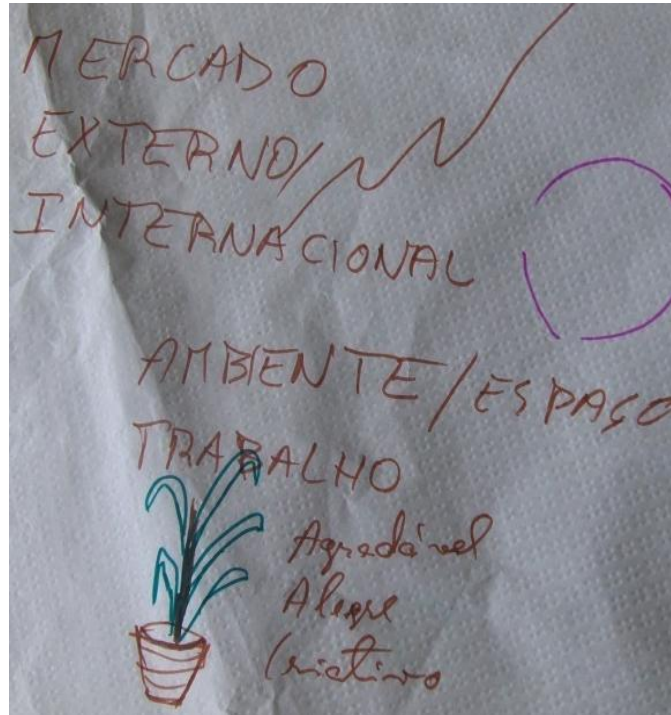 MERCADO
EXTERNO/
INTERNACIONAL
AMBIENTE/ESPAÇO
TRABALHO
Agradável
Alegre
Criativo